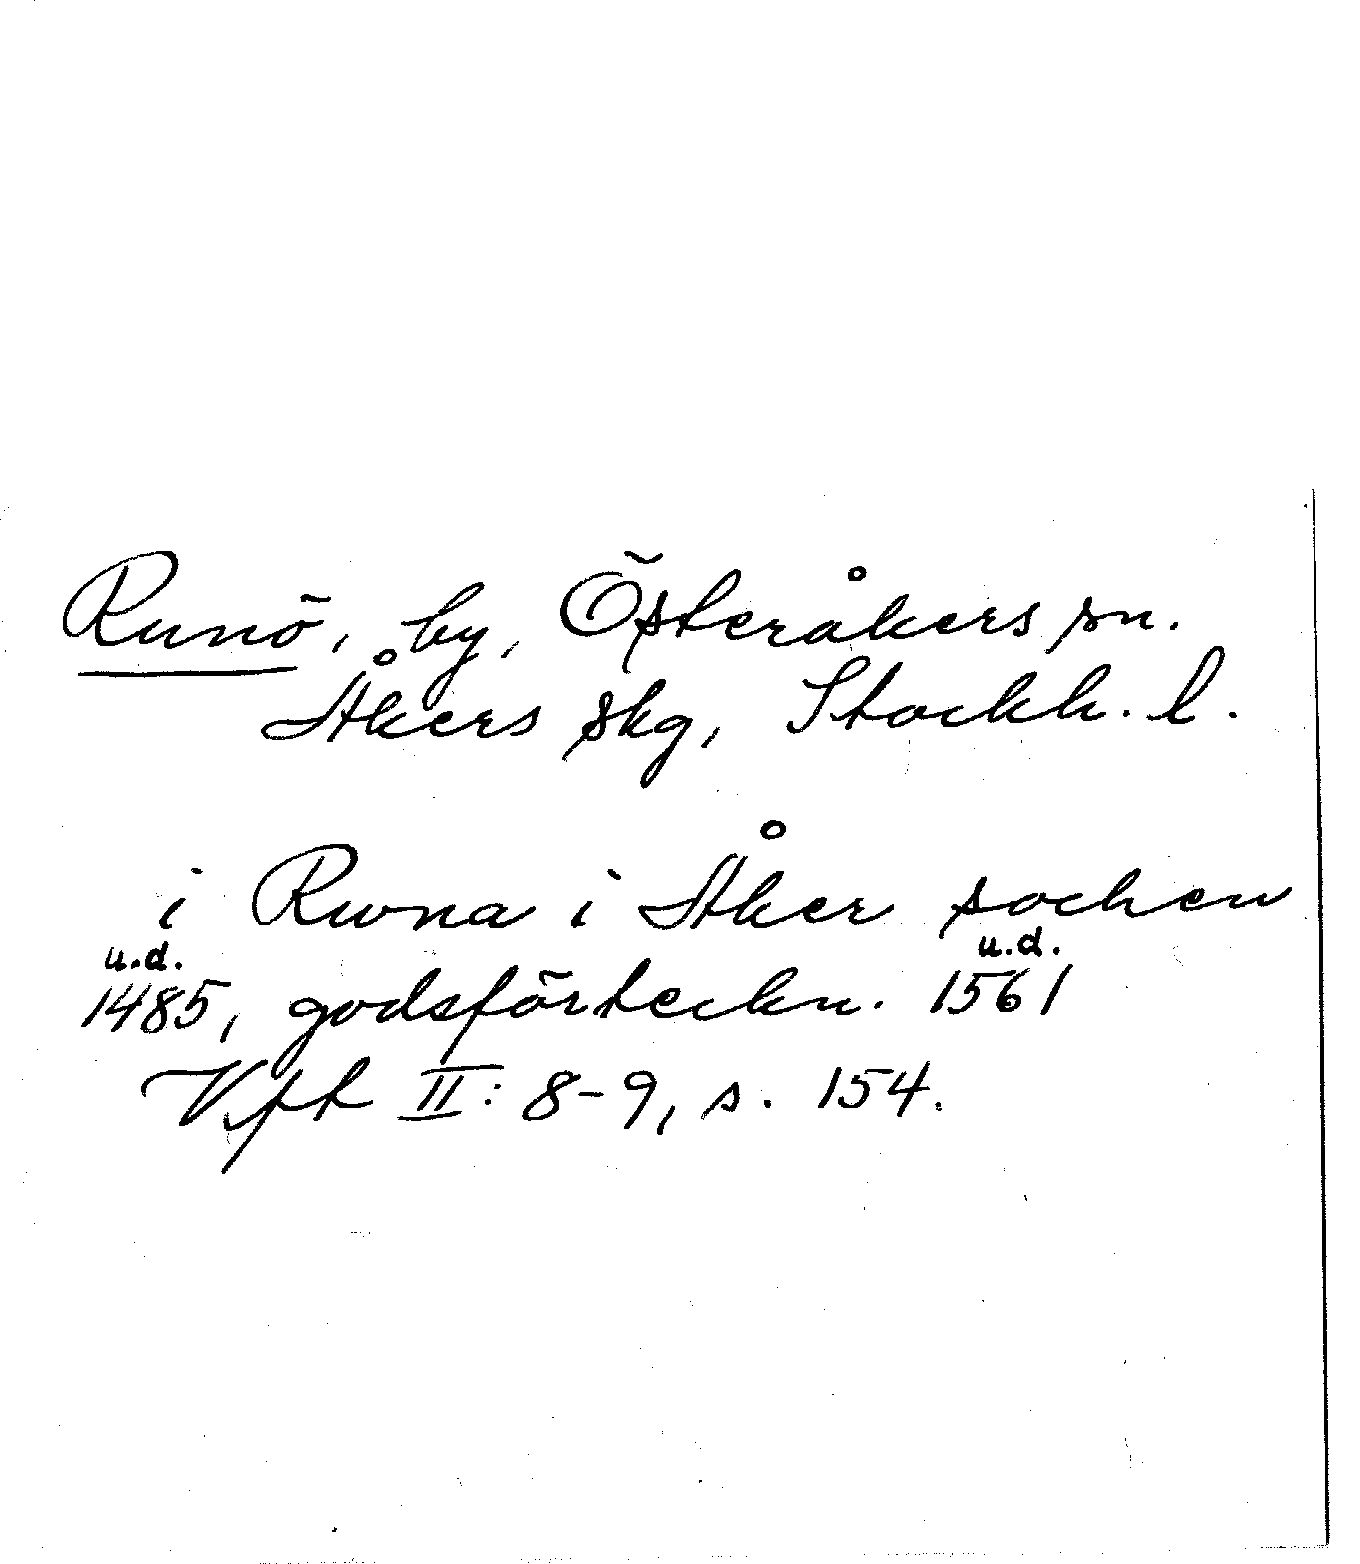 Runö, by, Österåkers sn.
Åkers skg, Stockh. l.
i Rwna i Åker sochen
u.d. u.d.
1485, godsförteckn. 1561
Vfk II: 8-9, s. 154.